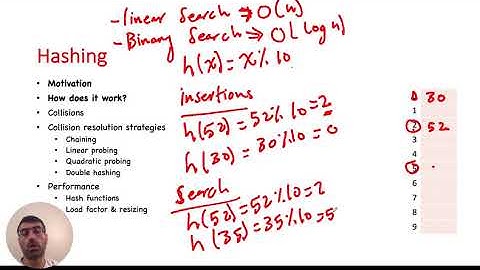 - linear Search => O(n)
- Binary Search => O(log n)
h(x) = x % 10
Hashing
• Motivation
• How does it work?
• Collisions
• Collision resolution strategies
• Chaining
• Linear probing
• Quadratic probing
• Double hashing
• Performance
• Hash functions
• Load factor & resizing
insertions
h(52) = 52 % 10 = 2
h(30) = 30 % 10 = 0
Search
h(52) = 52 % 10 = 2
h(35) = 35 % 10 = 5
0 30
1
2 52
3
4
5
6
7
8
9